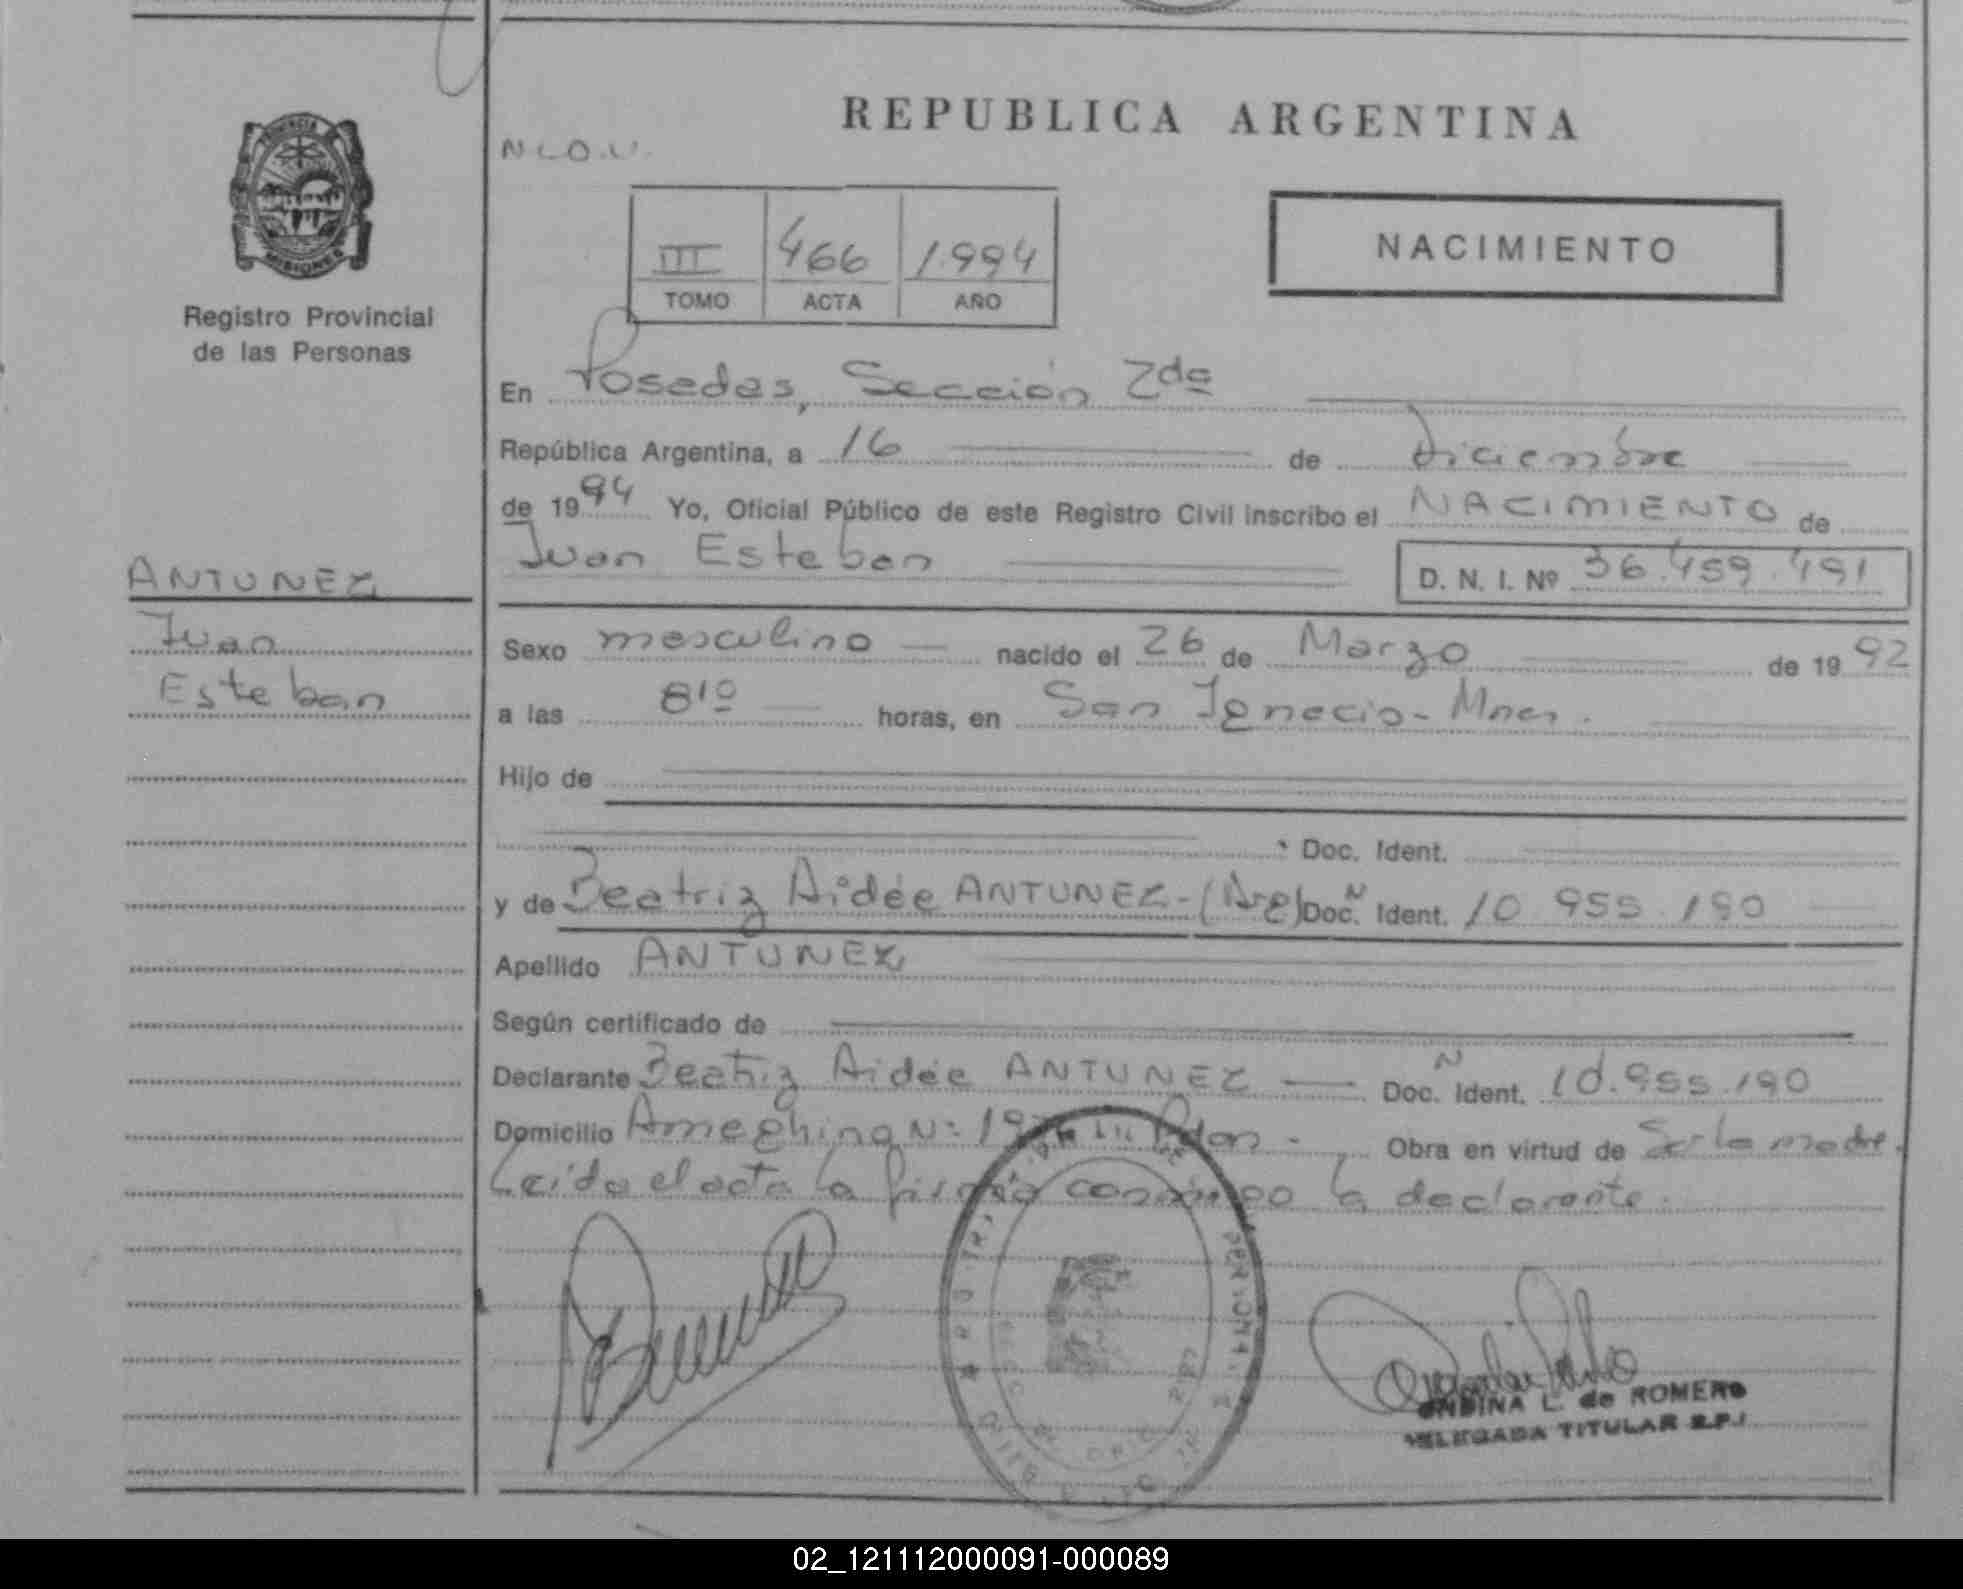 REPUBLICA ARGENTINA
N.L.O.U.
III 466 1.994
TOMO ACTA AÑO
NACIMIENTO
MISIONES
Registro Provincial
de las Personas
En Posadas, Sección 2da
República Argentina, a 16 de Diciembre
de 1994 Yo, Oficial Público de este Registro Civil inscribo el NACIMIENTO de
Juan Esteban D. N. I. Nº 36.459.491
ANTUNEZ
Juan
Esteban
Sexo masculino nacido el 26 de Marzo de 1992
a las 8¹⁰ horas, en San Ignacio - Mnes.
Hijo de
Doc. Ident.
y de Beatriz Aidée ANTUNEZ - (Arg) Doc. N Ident. 10.955.190
Apellido ANTUNEZ
Según certificado de
Declarante Beatriz Aidée ANTUNEZ Doc. N Ident. 10.955.190
Domicilio Ameghino Nº Pdas - Obra en virtud de Ser la madre.
Leída el acta la firma conmigo la declarante.
ONDINA L. de ROMERO
DELEGADA TITULAR R.P.
02_121112000091-000089